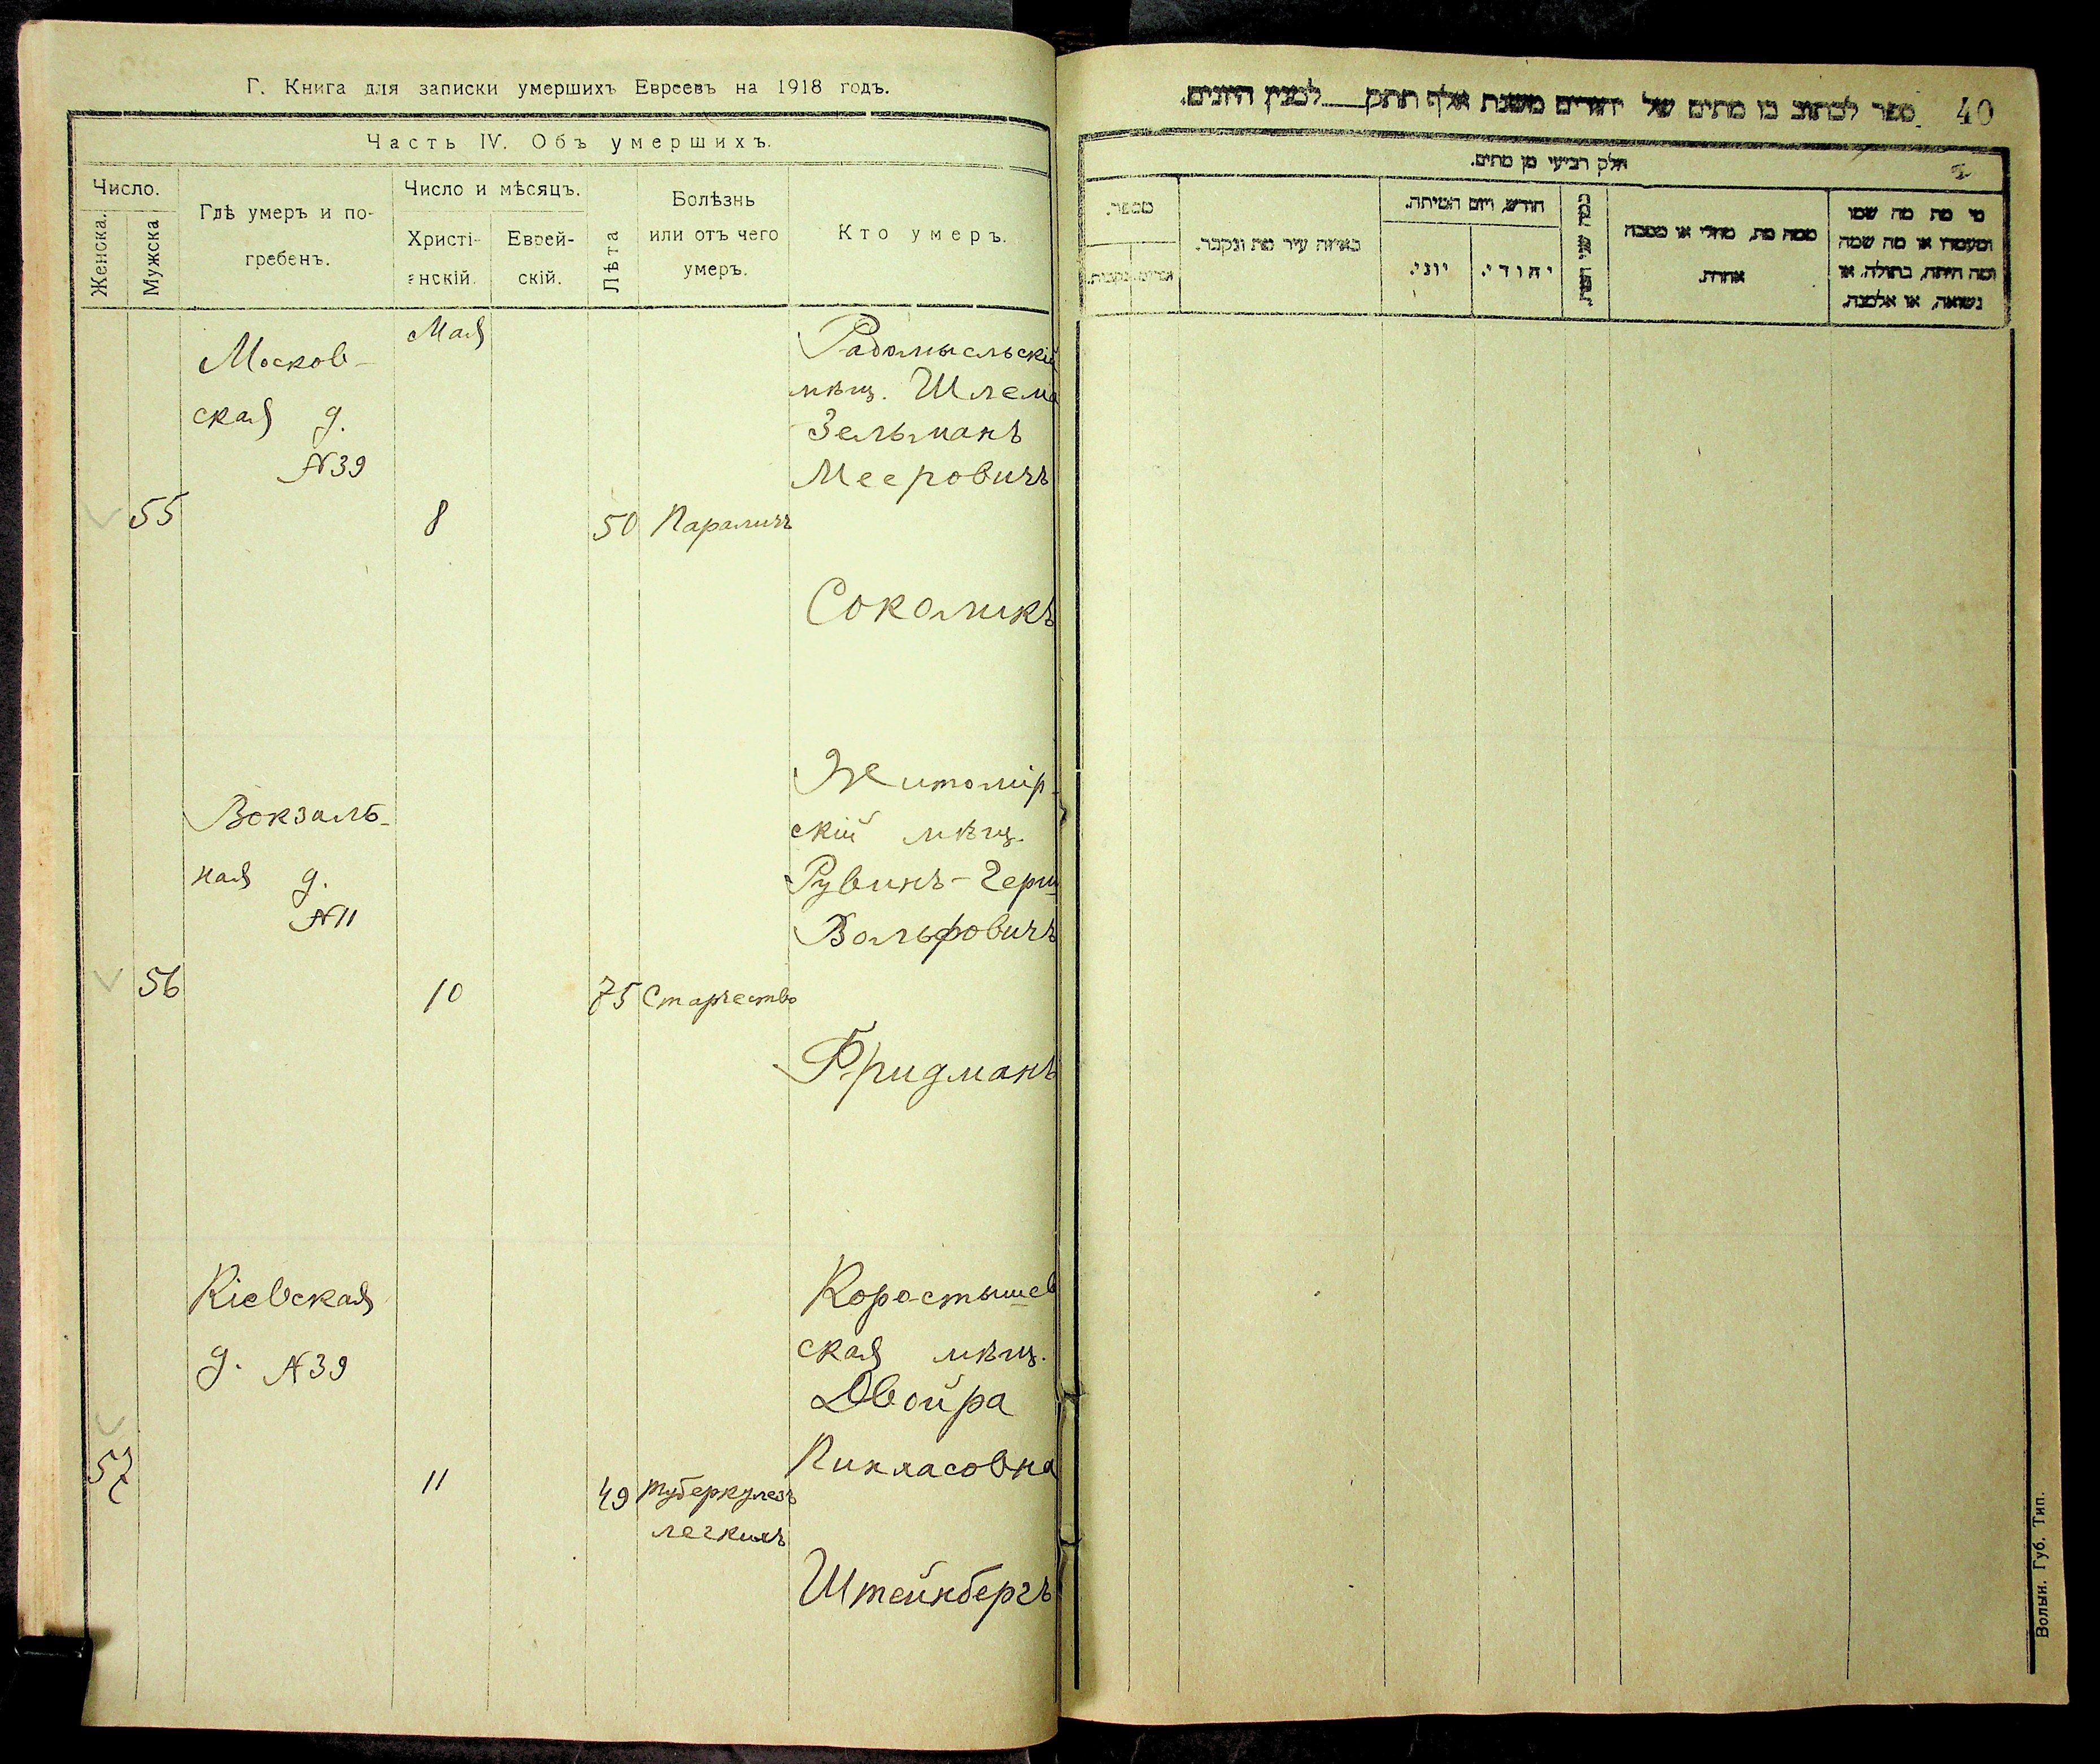 Г. Книга для записки умершихъ Евреевъ на 1918 годъ.
Часть IV. Объ умершихъ.
Число.
Женска.
Мужска
Гдѣ умеръ и по-
гребенъ.
Число и мѣсяцъ.
Христі-
анскій.
Еврей-
скій.
Лѣта
Болѣзнь
или отъ чего
умеръ.
Кто умеръ.
55
Москов-
ская д.
№39
Мая
8
50
Параличъ
Радомысльскій
мѣщ. Шлема
Зельманъ
Мееровичъ
Соколикъ
56
Вокзаль-
ная д.
№11
10
75
Старчество
Житомір-
скій мѣщ.
Рувинъ-Герш
Вольфовичъ
Фридманъ
57
Кіевская
д. №39
11
49
туберкулезъ
легкихъ
Коростышев
ская мѣщ.
Двойра
Пинхасовна
Штейнбергъ
40
ספר לכתוב בו מתים של יהודים משנת אלף תתק למנין היונים.
חלק רביעי מן מתים.
מספר.
באיזה עיר מת ונקבר.
חודש, ויום המיתה.
יוני.
יהודי.
ממה מת, מחלי או מסבה
אחרת.
מי מת מה שמו
ומעמדו או מה שמה
ומה היתה, בתולה, או
נשואה, או אלמנה.
Волын. Губ. Тип.